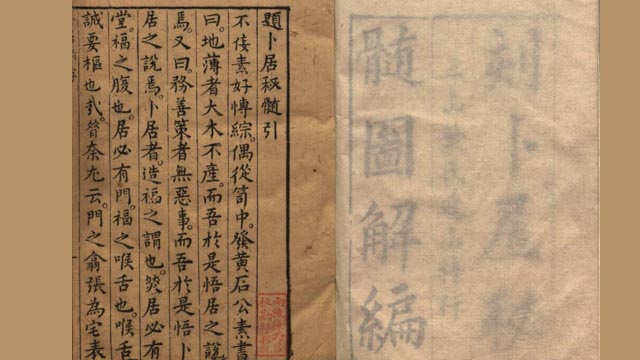 刻卜居秘
髓圖解編
題卜居秘髓引
不佞素好愽綜。偶從笥中。發黄石公素書
曰。地薄者大木不産。而吾於是悟居之説
焉。又曰。務善策者無惡事。而吾於是悟卜
居之説焉。卜居者。造福之謂也。然居必有
堂。福之腹也。居必有門。福之喉舌也。喉舌
誠要樞也哉。奈尤云。門之翕張為宅表